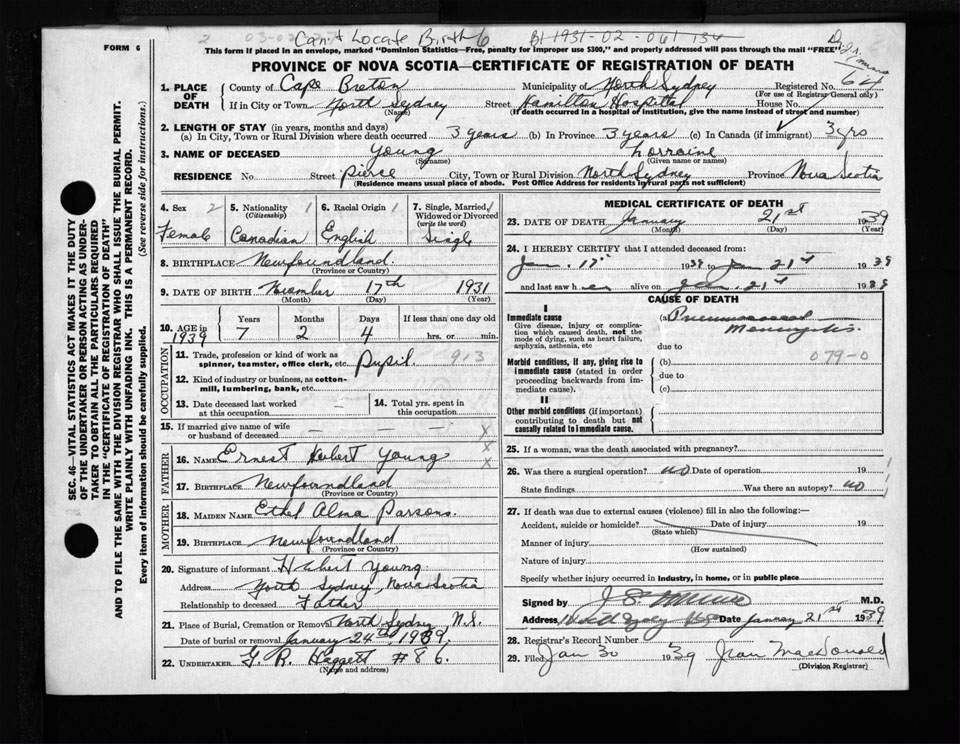 2 Can't Locate Birth 6 B1 1931-02-061 134
FORM 6
This form if placed in an envelope, marked "Dominion Statistics—Free, penalty for improper use $300," and properly addressed will pass through the mail "FREE"
PROVINCE OF NOVA SCOTIA—CERTIFICATE OF REGISTRATION OF DEATH
1. PLACE OF DEATH
County of Cape Breton Municipality of North Sydney Registered No. 64
(For use of Registrar General only)
If in City or Town North Sydney Street Hamilton Hospital House No.
(Name) (If death occurred in a hospital or institution, give the name instead of street and number)
2. LENGTH OF STAY (in years, months and days)
(a) In City, Town or Rural Division where death occurred 3 years (b) In Province 3 years (c) In Canada (if immigrant) 3 yrs
3. NAME OF DECEASED Young Lorraine
(Surname) (Given name or names)
RESIDENCE No Street Pierce City, Town or Rural Division North Sydney Province Nova Scotia
(Residence means usual place of abode. Post Office Address for residents in rural parts not sufficient)
4. Sex 2 Female
5. Nationality 1 (Citizenship) Canadian
6. Racial Origin 1 English
7. Single, Married, Widowed or Divorced (write the word) Single
8. BIRTHPLACE Newfoundland
(Province or Country)
9. DATE OF BIRTH November 17th 1931
(Month) (Day) (Year)
10. AGE in 1939 Years 7 Months 2 Days 4 If less than one day old hrs. or min.
OCCUPATION
11. Trade, profession or kind of work as spinner, teamster, office clerk, etc. Pupil 913
12. Kind of industry or business, as cotton-mill, lumbering, bank, etc.
13. Date deceased last worked at this occupation —
14. Total yrs. spent in this occupation —
15. If married give name of wife or husband of deceased — — x
FATHER
16. NAME Ernest Herbert Young x x
17. BIRTHPLACE Newfoundland
(Province or Country)
MOTHER
18. MAIDEN NAME Ethel Alma Parsons.
19. BIRTHPLACE Newfoundland
(Province or Country)
20. Signature of informant Herbert Young
Address North Sydney, Nova Scotia
Relationship to deceased Father
21. Place of Burial, Cremation or Removal North Sydney N.S.
Date of burial or removal January 24th 1939.
22. UNDERTAKER G. R. Haggett #86.
(Name and address)
MEDICAL CERTIFICATE OF DEATH
23. DATE OF DEATH January 21st 1939
(Month) (Day) (Year)
24. I HEREBY CERTIFY that I attended deceased from:
Jan. 17th 1939 to Jan 21st 1939
and last saw her alive on Jan. 21st 1939
CAUSE OF DEATH
I
Immediate cause
Give disease, injury or complication which caused death, not the mode of dying, such as heart failure, asphyxia, asthenia, etc
(a) Pneumococcal Meningitis.
due to
Morbid conditions, if any, giving rise to immediate cause (stated in order proceeding backwards from immediate cause).
(b) 079-0
due to
(c)
II
Other morbid conditions (if important) contributing to death but not causally related to immediate cause.
25. If a woman, was the death associated with pregnancy?
26. Was there a surgical operation? no Date of operation 19
State findings Was there an autopsy? no
27. If death was due to external causes (violence) fill in also the following:—
Accident, suicide or homicide? Date of injury 19
(State which)
Manner of injury
(How sustained)
Nature of injury
Specify whether injury occurred in industry, in home, or in public place
Signed by M.D.
Address Date January 21st 1939
28. Registrar's Record Number
29. Filed Jan 30 1939 Jean MacDonald
(Division Registrar)
SEC. 46—VITAL STATISTICS ACT MAKES IT THE DUTY OF THE UNDERTAKER OR PERSON ACTING AS UNDERTAKER TO OBTAIN ALL THE PARTICULARS REQUIRED IN THE "CERTIFICATE OF REGISTRATION OF DEATH" AND TO FILE THE SAME WITH THE DIVISION REGISTRAR WHO SHALL ISSUE THE BURIAL PERMIT.
WRITE PLAINLY WITH UNFADING INK. THIS IS A PERMANENT RECORD.
Every item of information should be carefully supplied. (See reverse side for instructions.)